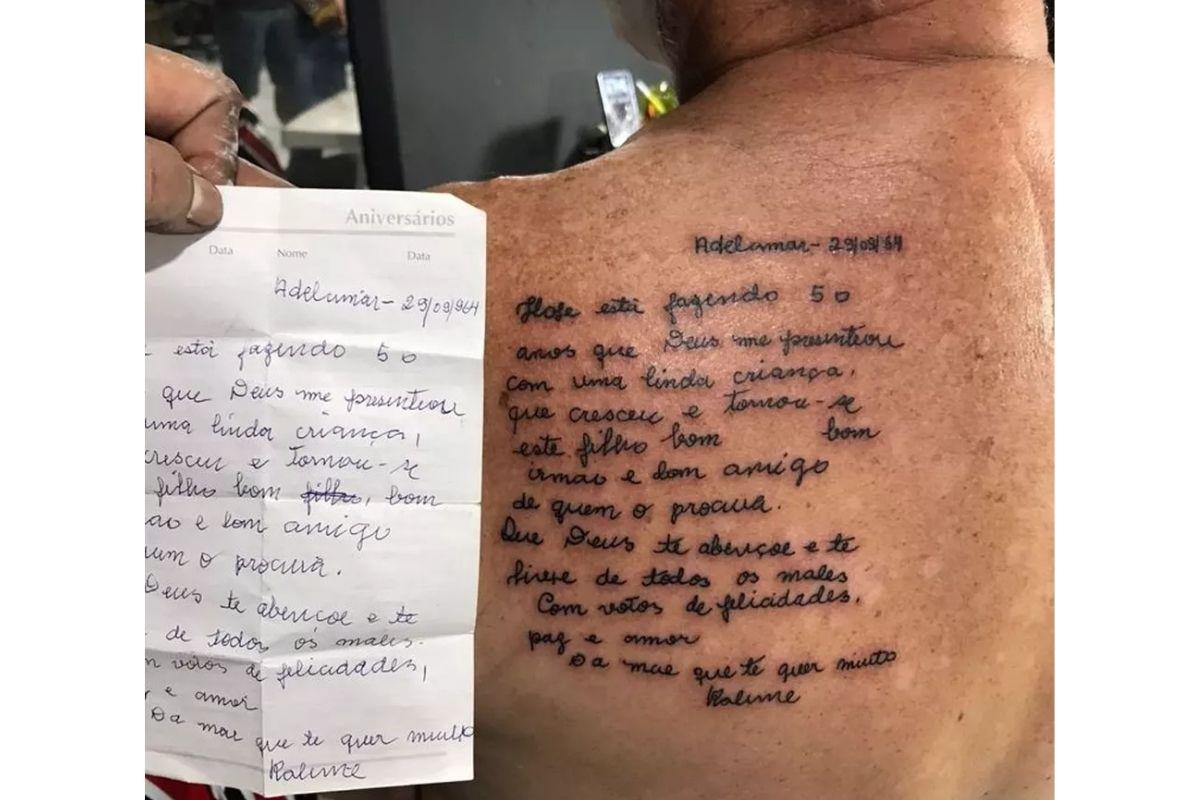 Aniversários
Data Nome Data
Adelamar - 29/09/964
está fazendo 50
que Deus me presenteou
uma linda criança,
cresceu e tornou-se
filho bom filho, bom
ão e bom amigo
uem o procura.
Deus te abençoe e te
de todos os males.
m votos de felicidades,
e amor
Da mae que te quer muito
Kalime
Adelamar - 29/09/64
Hoje está fazendo 50
anos que Deus me presenteou
com uma linda criança,
que cresceu e tornou-se
este filho bom bom
irmao e bom amigo
de quem o procura.
Que Deus te abençoe e te
livre de todos os males
Com votos de felicidades,
paz e amor
Da mae que te quer muito
Kalime